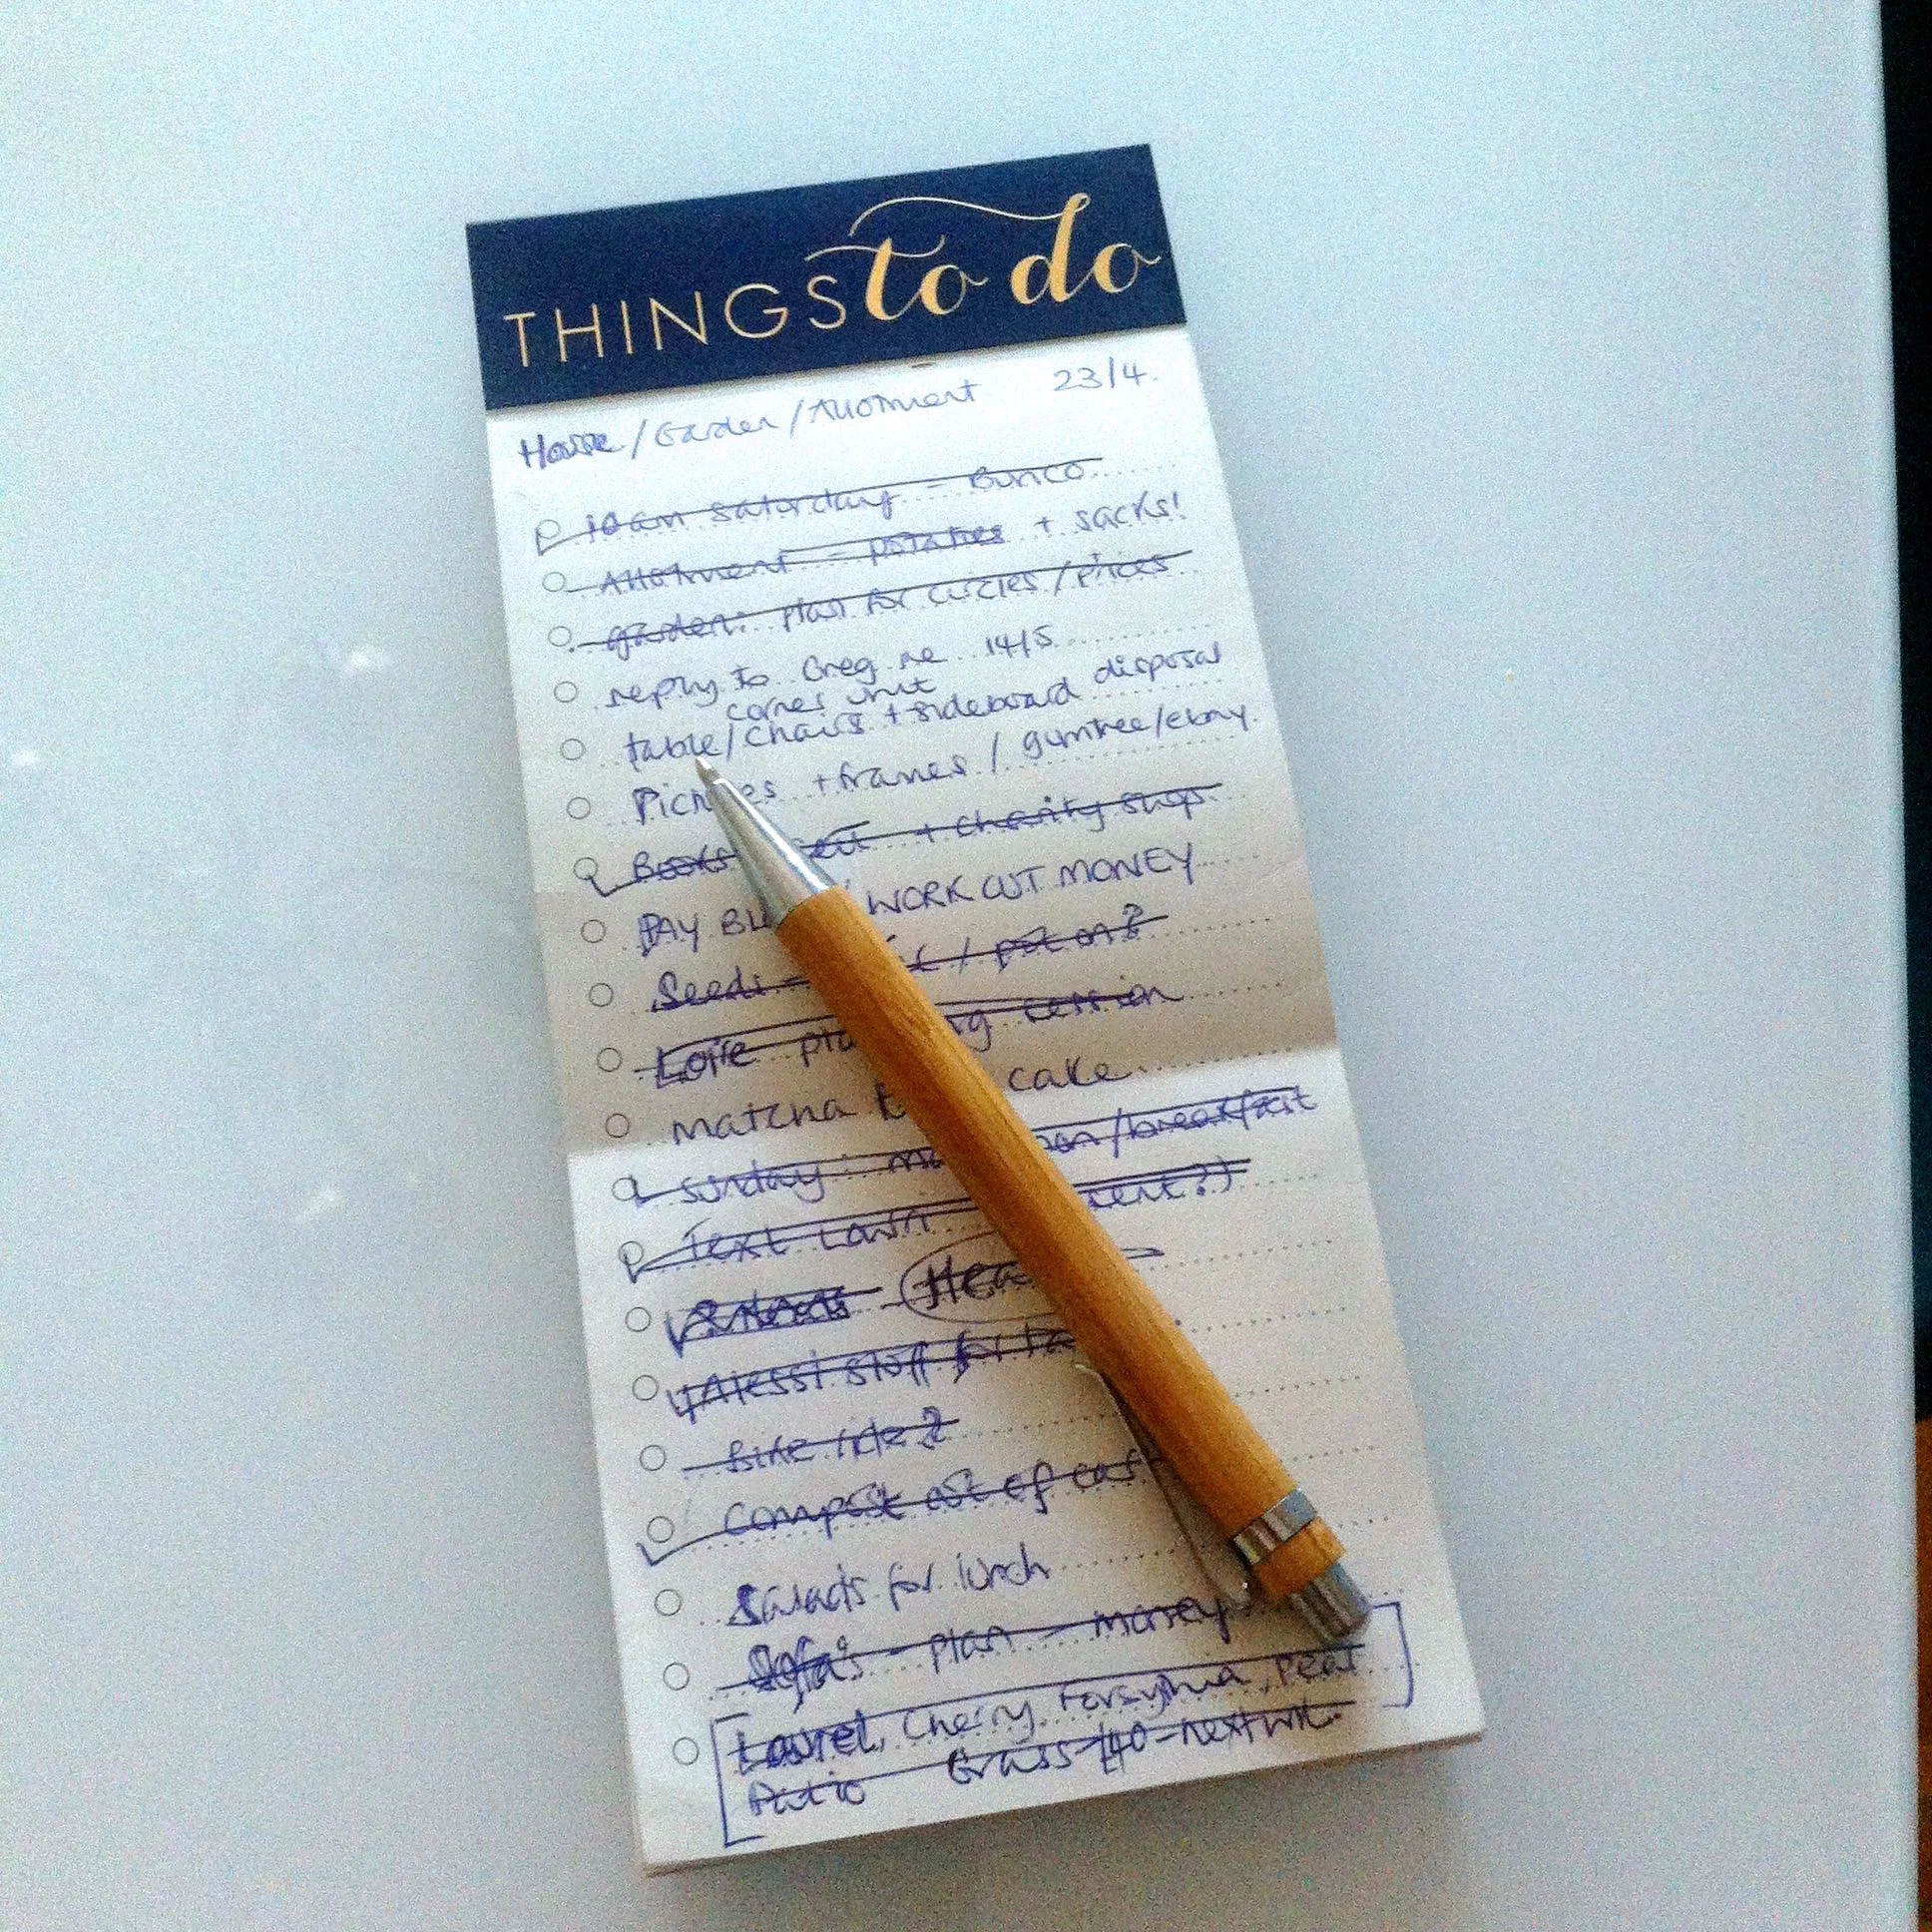 THINGS to do
House/Garden/Allotment 23/4.
10am Saturday - Bunco
Allotment - potatoes + sacks!
garden: plan for circles/prices
reply to Greg re 14/5
corner unit
table/chairs + sideboard disposal
Pictures + frames / gumtree/ebay
Books + charity shop.
PAY WORK OUT MONEY
Seeds - / pot on?
session
matcha cake
Sunday: /breakfast
Text Lawn
Alessi stuff for
Bike ride?
Compost out of car
Salads for lunch
Sofa's - plan - money
Laurel, Cherry, Forsythia, pear
Patio Grass £40 - next wk.